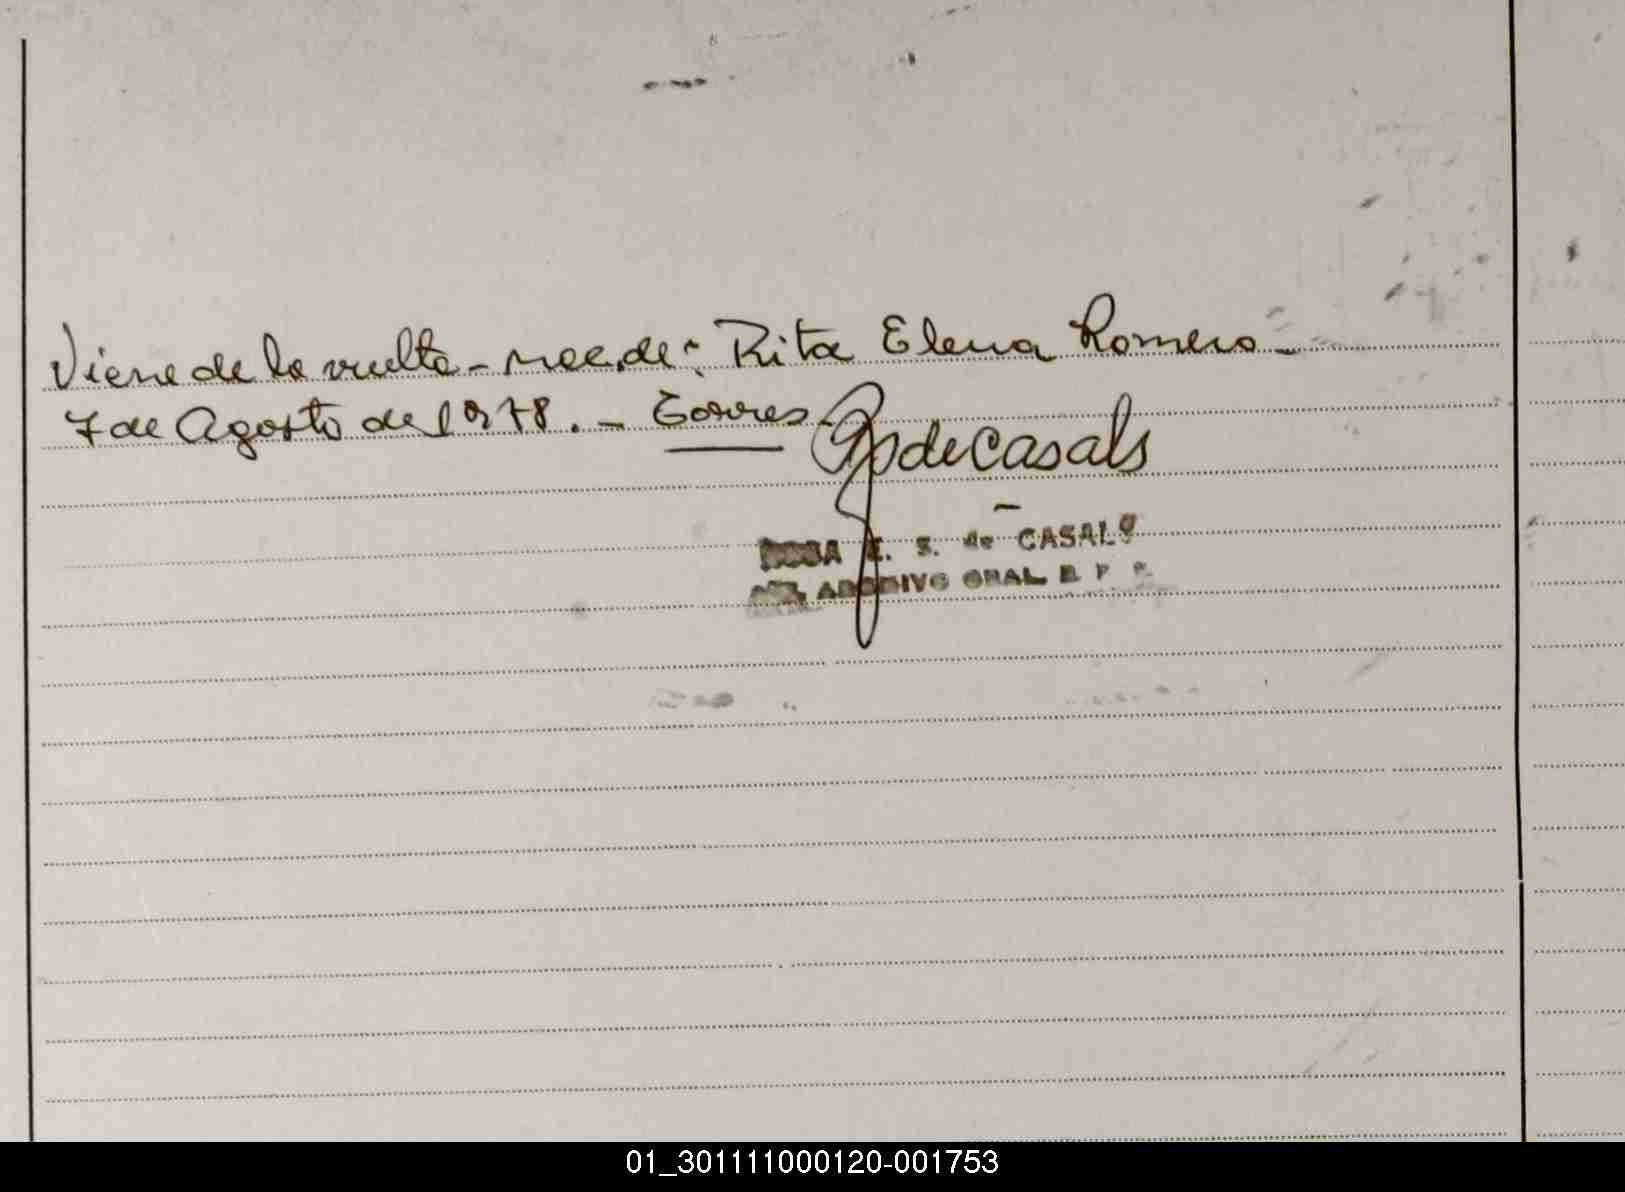 Viene de la vuelta - nac. de: Rita Elena Romero -
7 de Agosto de 1978. - Torres
deCasals
ROSA E. S. de CASALS
ARCHIVO GRAL. R P P.
01_301111000120-001753